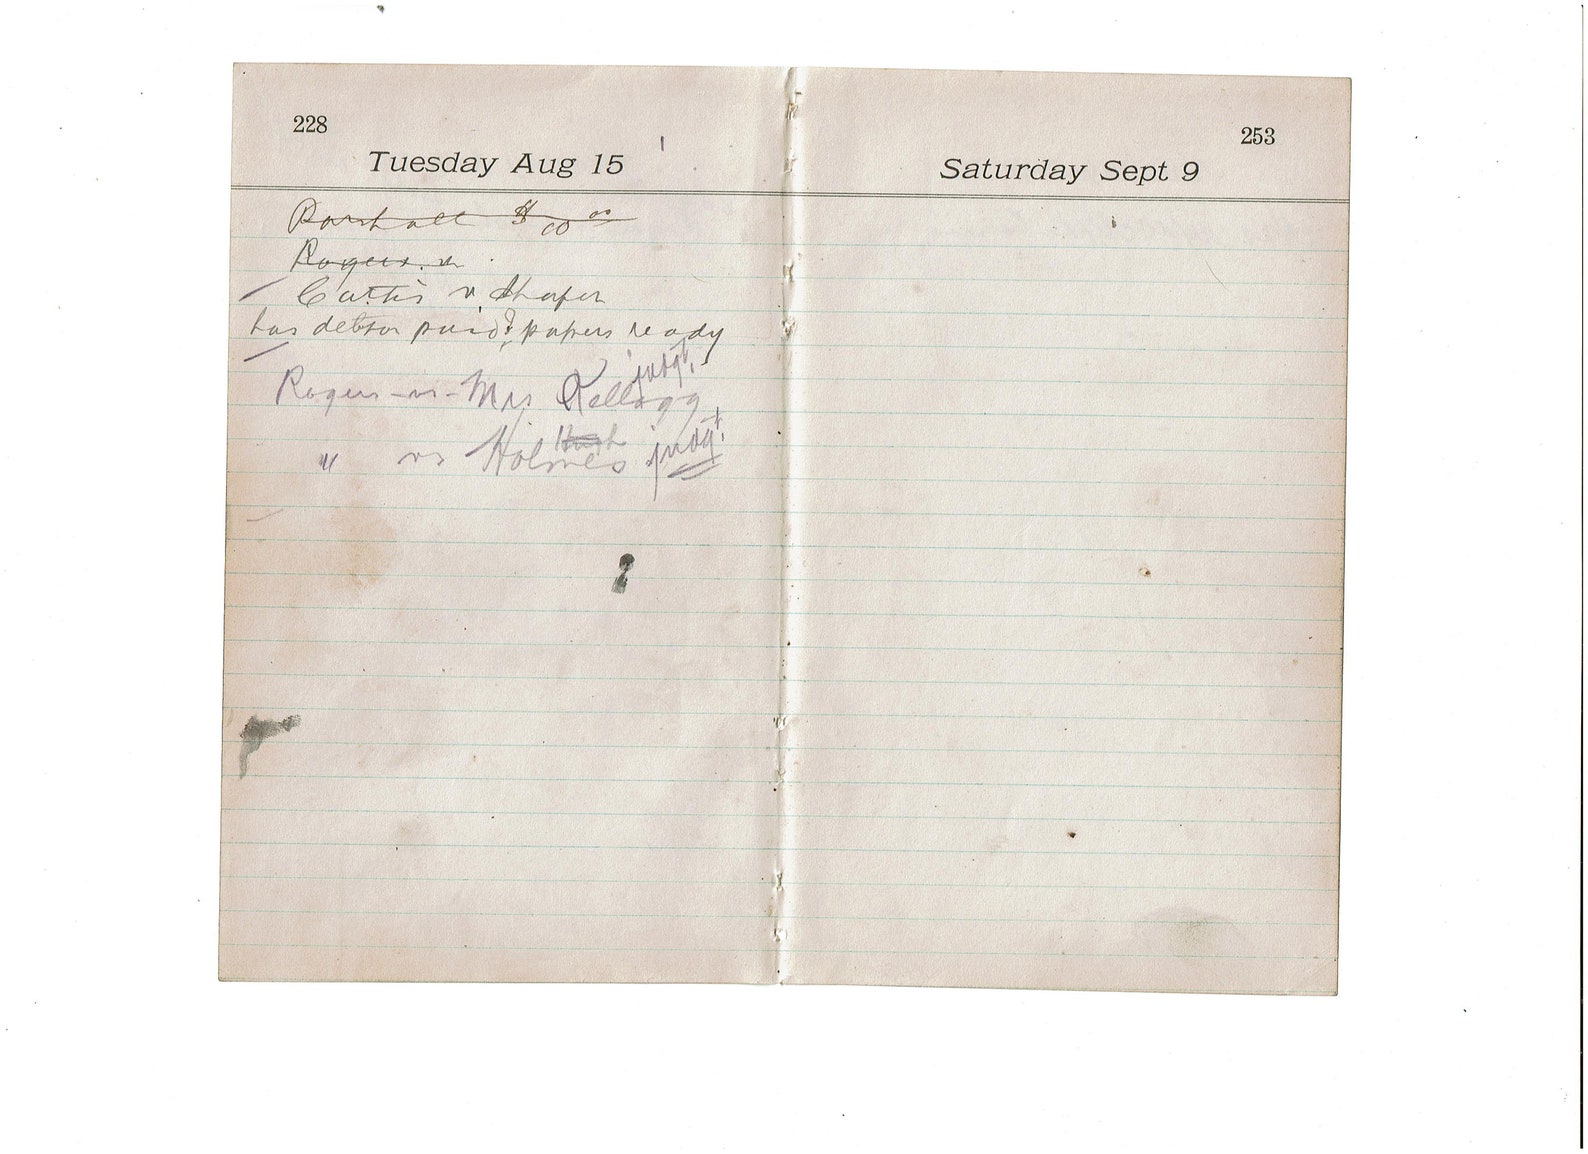 228
Tuesday Aug 15
Marshall $ 00
Rogers v.
Curtis v. Shafer
has debtor paid? papers ready
Rogers -vs- Mrs Kellogg judgt.
" vs Holmes judgt.
253
Saturday Sept 9